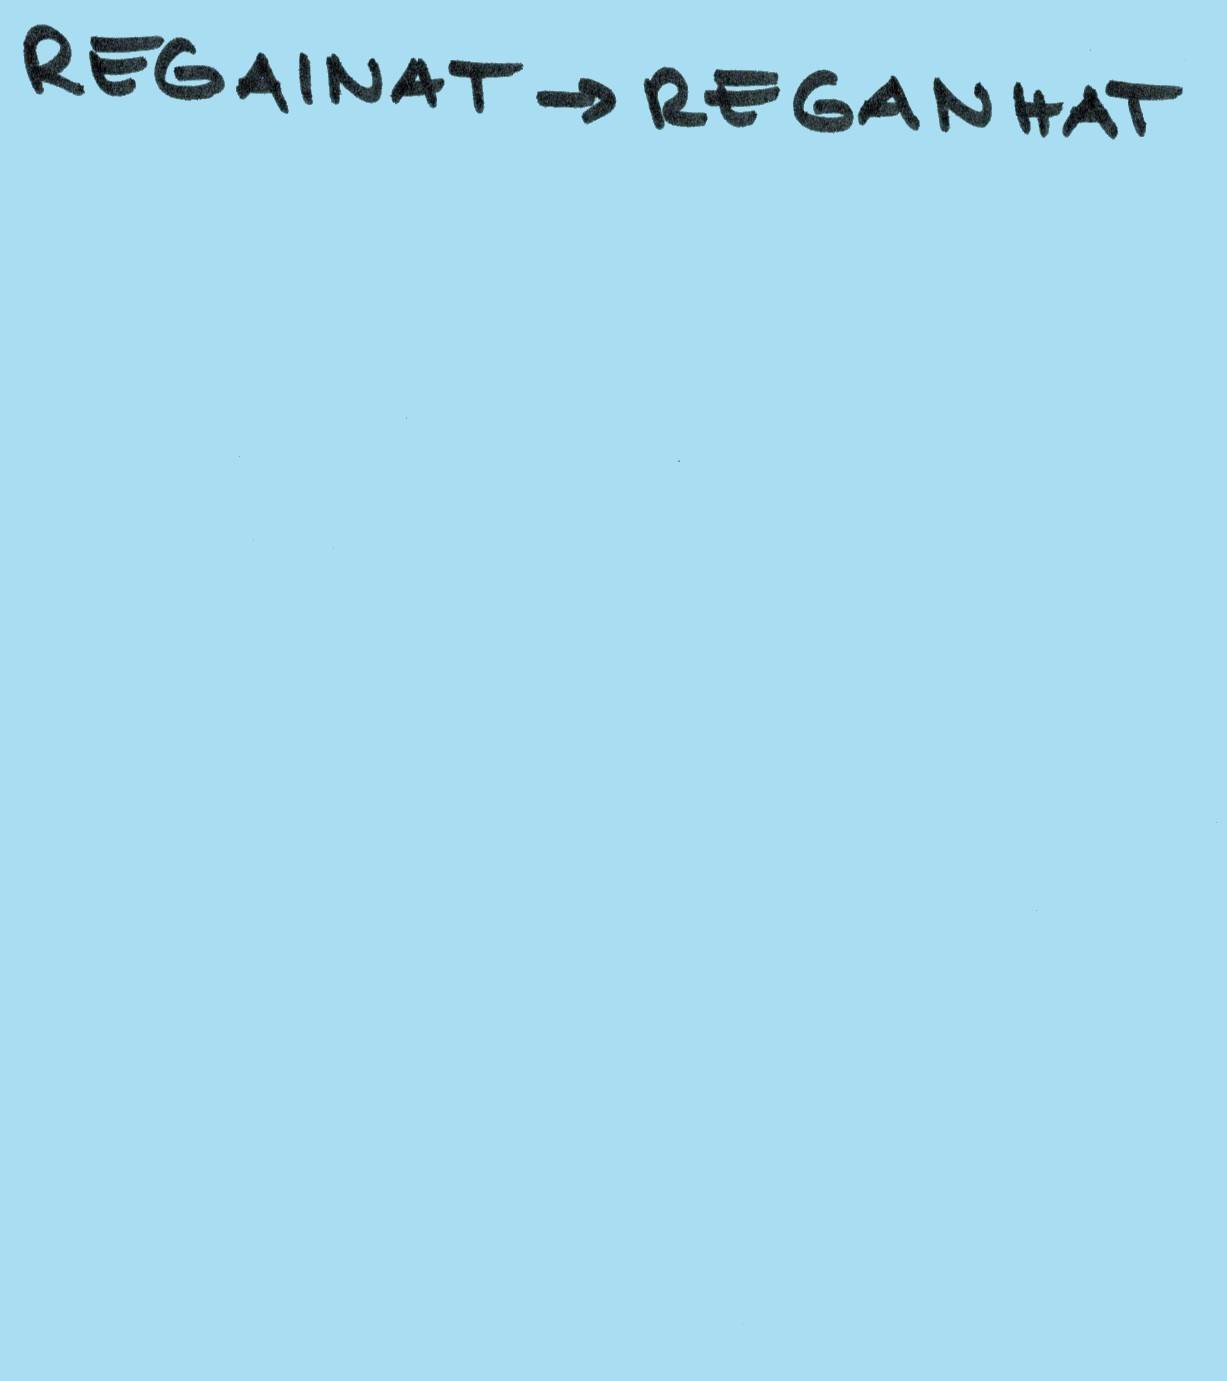 REGAINAT → REGANHAT